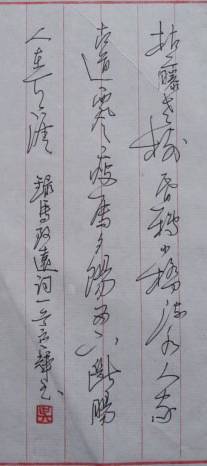 枯藤老树昏鸦小桥流水人家
古道西风瘦马夕阳西下断肠
人在天涯 録马致远词